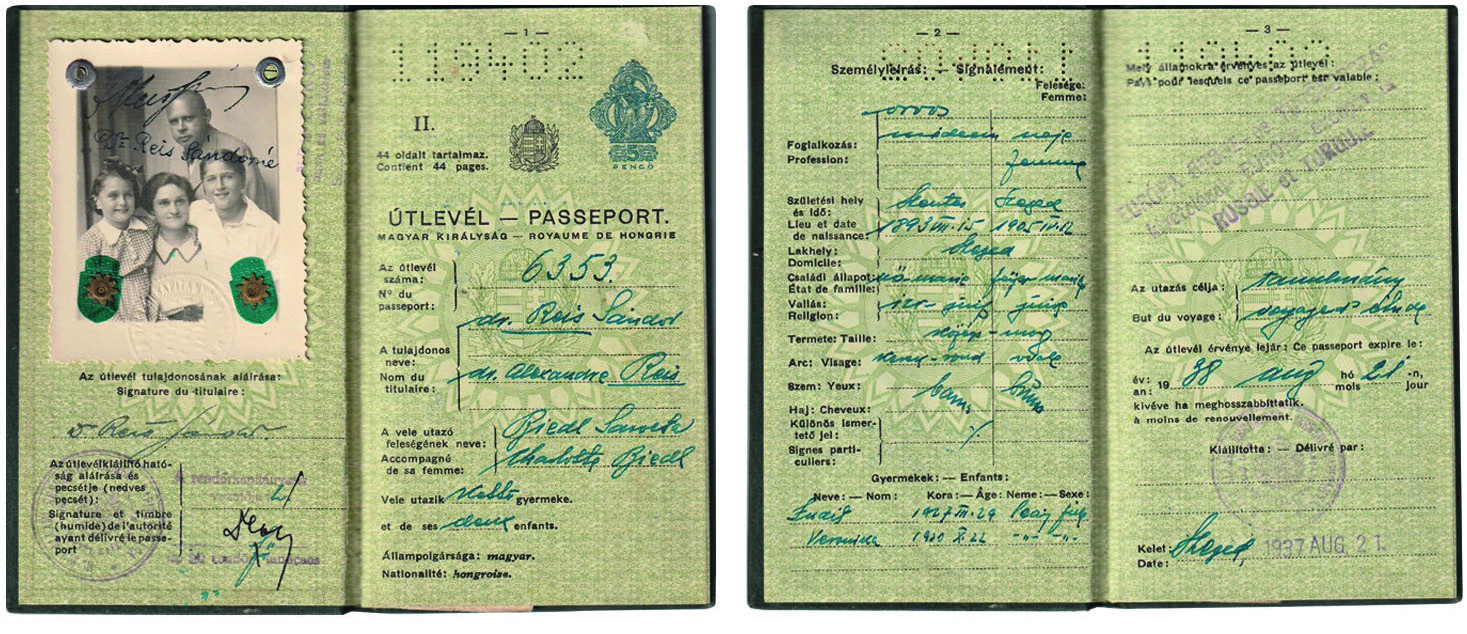 Dr Reis Sándorné
Az útlevél tulajdonosának aláírása:
Signature du titulaire:
Dr Reis Sándor.
Az útlevélkiállító ható-
ság aláírása és
pecsétje (nedves
pecsét):
Signature et timbre
(humide) de l'autorité
ayant délivré le passe-
port
A rendőrkapitányság
vezetője
— 1 —
119402
II.
44 oldalt tartalmaz.
Contient 44 pages.
5
PENGŐ
ÚTLEVÉL — PASSEPORT.
MAGYAR KIRÁLYSÁG — ROYAUME DE HONGRIE
Az útlevél
száma:
6353.
Nº du
passeport:
dr. Reis Sándor
A tulajdonos
neve:
Nom du
titulaire:
dr. Alexandre Reis
A vele utazó
feleségének neve:
Riedl Sarolta
Accompagné
de sa femme:
Charlotte Riedl
Vele utazik kettő gyermeke.
et de ses deux enfants.
Állampolgársága: magyar.
Nationalité: hongroise.
— 2 —
Személyleírás: — Signalément:
Felesége:
Femme:
orvos
médecin neje
Foglalkozás:
Profession:
femme
Születési hely
és idő:
Szentes Szeged
Lieu et date
de naissance:
1893 VII. 15 1905 IV. 12
Lakhely:
Domicile:
Szeged
Családi állapot:
État de famille:
nős marié férjes mariée
Vallás:
Religion:
izr. juif juive
Termete: Taille:
közép - moy
Arc: Visage:
kerek - rond ovale
Szem: Yeux:
barna bruns
Haj: Cheveux:
Különös ismer-
tető jel:
Signes parti-
culiers:
Gyermekek: — Enfants:
Neve: — Nom: Kora: — Âge: Neme: — Sexe:
1927 III. 29
Veronika 1930 X. 22
— 3 —
119402
Mely államokra érvényes az útlevél:
Pays pour lesquels ce passeport est valable:
EURÓPA
RUSSIE et TURQUIE
Az utazás célja:
tanulmány
But du voyage:
voyage d'étude
Az útlevél érvénye lejár: Ce passeport expire le:
év: 1938 aug hó 21 -n,
an: mois jour
kivéve ha meghosszabbíttatik.
à moins de renouvellement.
Kiállította: — Délivré par:
Kelet: Szeged, 1937 AUG. 21.
Date: